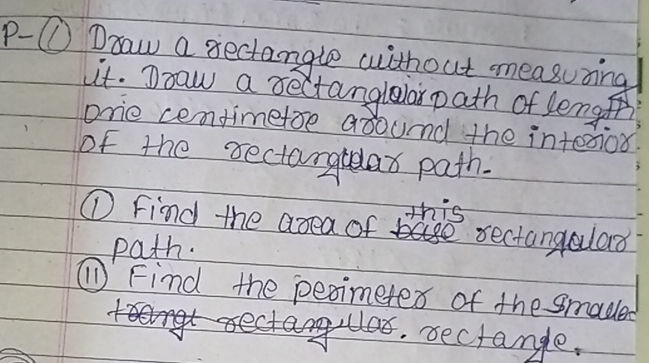 P-① Draw a rectangle without measuring
it. Draw a rectangular path of length
one centimetre around the interior
of the rectangular path.
① Find the area of this rectangular
path.
⑪ Find the perimeter of the smaller
rectangle.